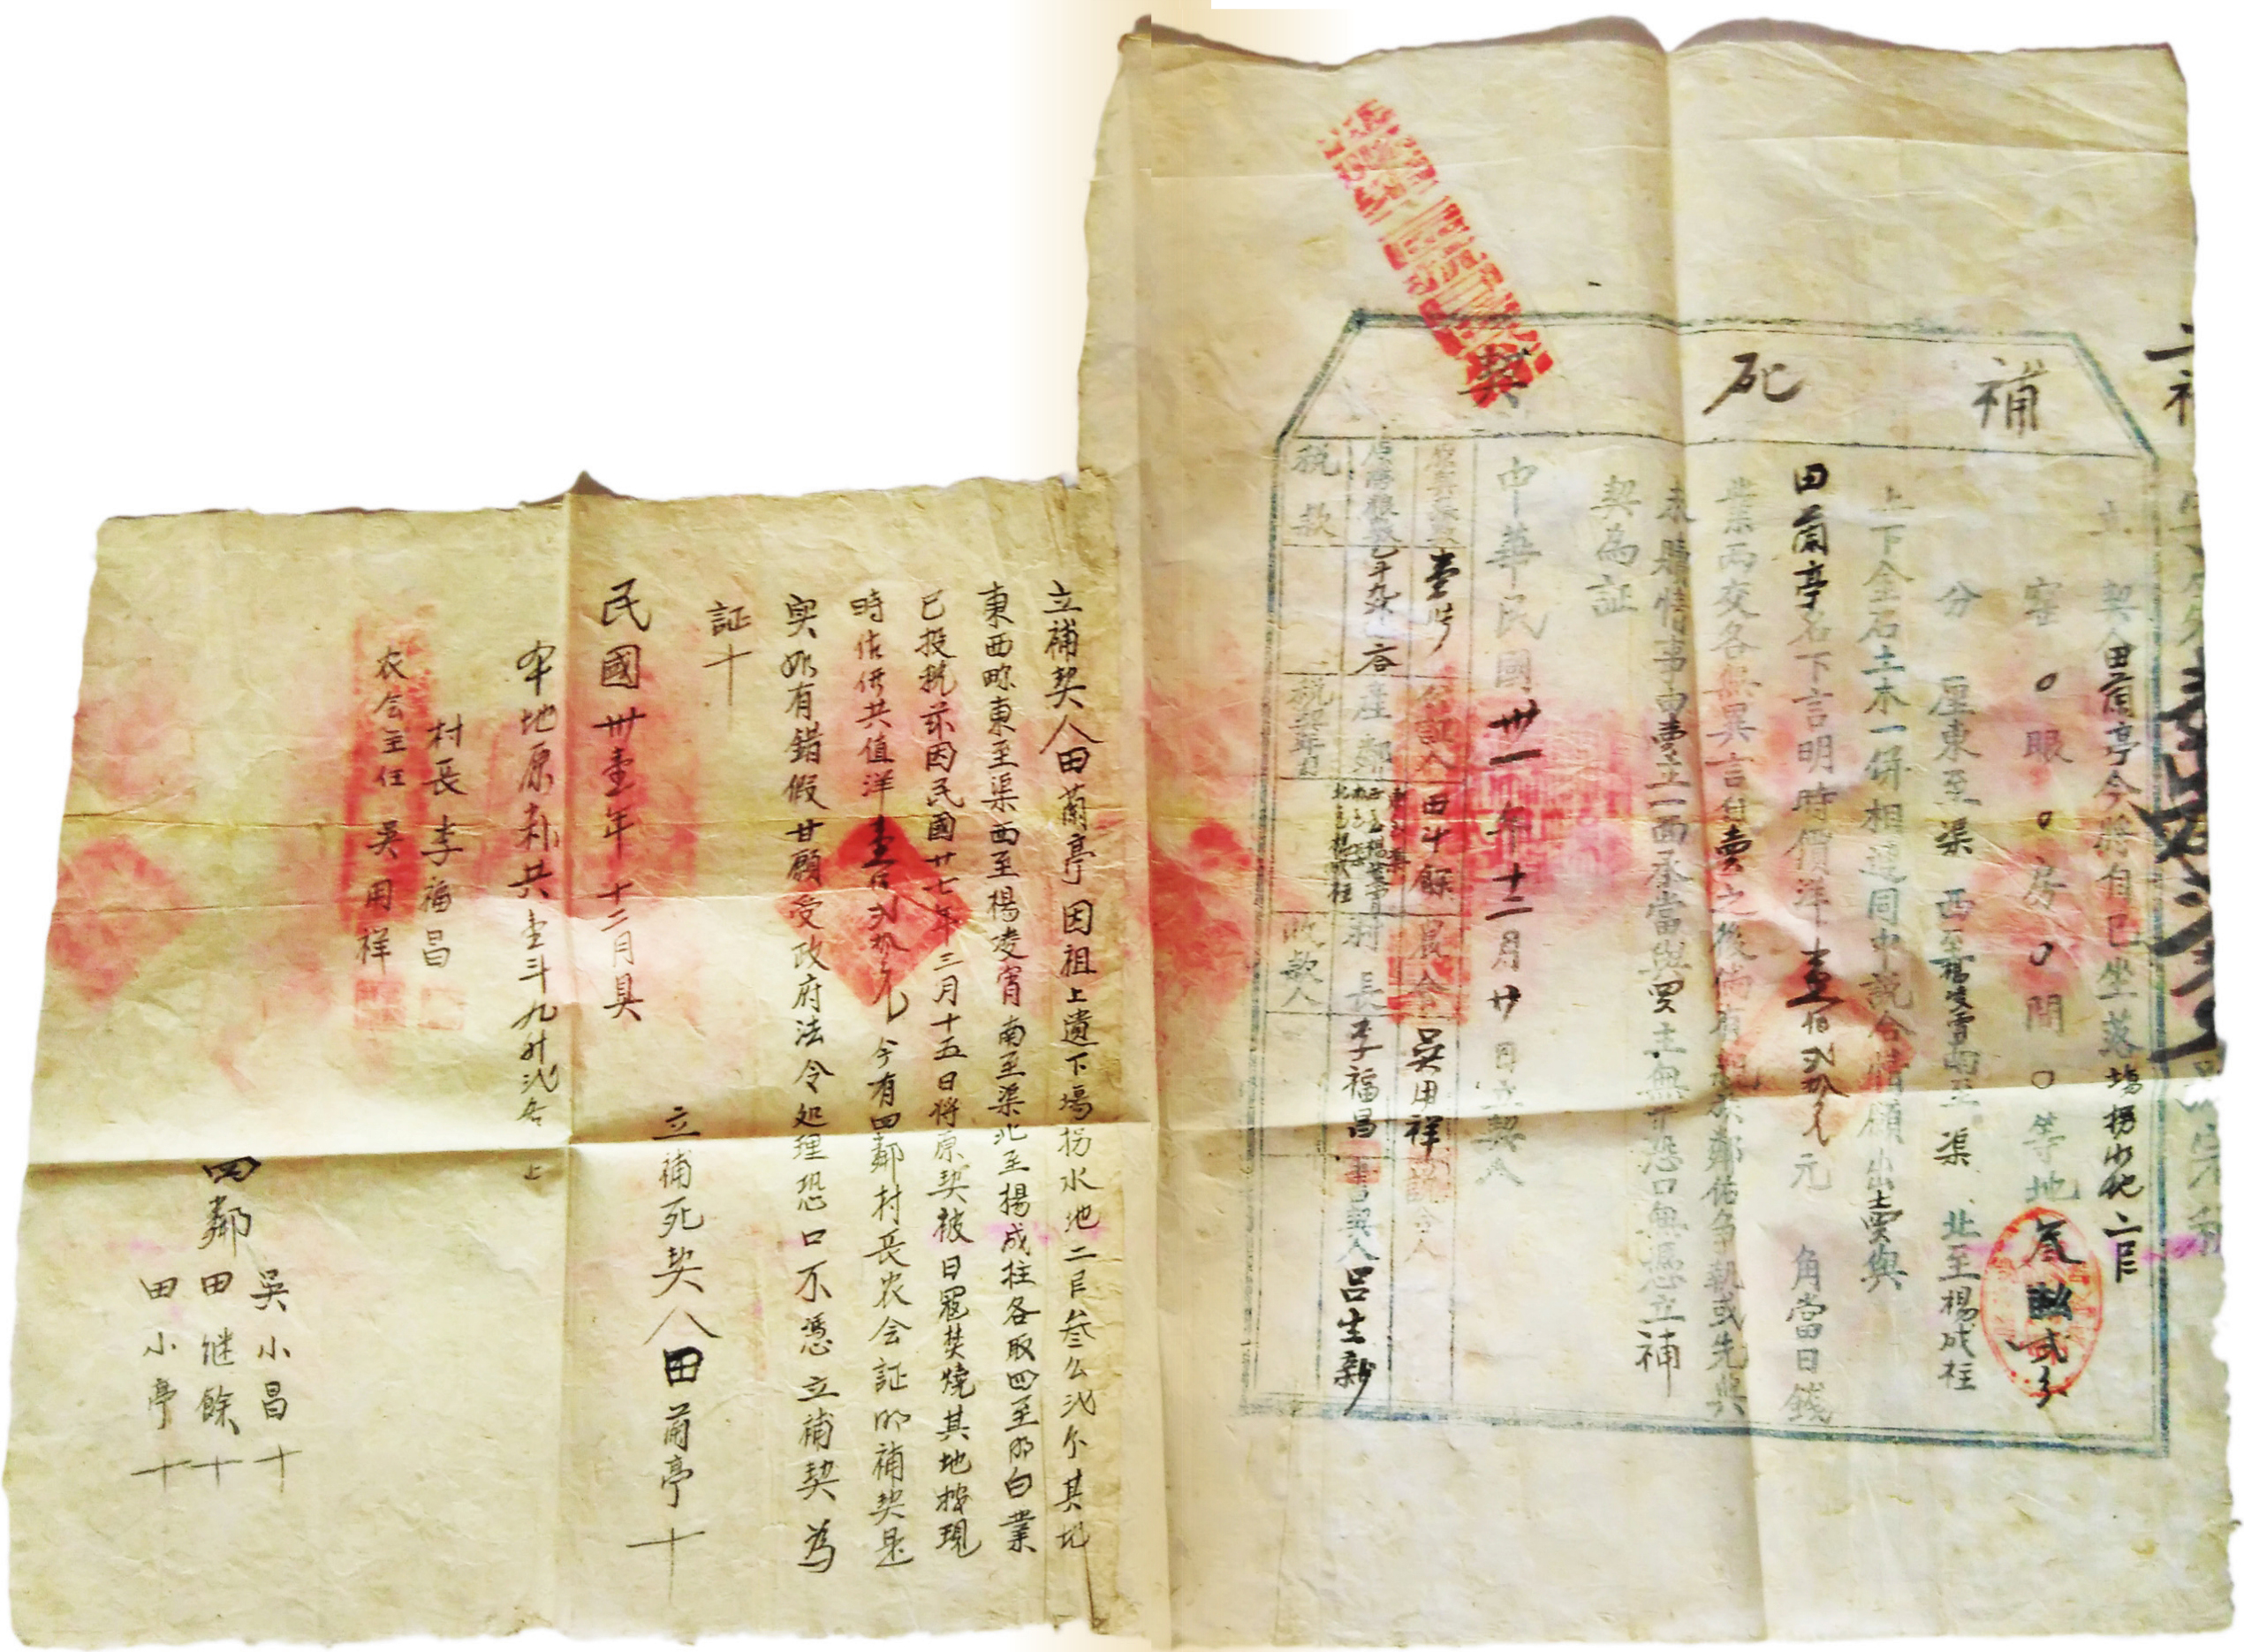 補死契
契人田蘭亭今將自己坐落塲拐水地二㫖
窰〇眼〇房〇間〇等地叁畝弍分
分厘東至渠西至楊凌霄南至渠北至楊成柱
上下金石土木一併相連同中說合情愿出賣與
田蘭亭名下言明時價洋壹佰弍拾元元角當日錢
業兩交各無異言自賣之後倘有親族鄰佑争執或先典
未贖情事由賣主一面承當與買主無干恐口無憑立補
契為証
中華民國卅一年十二月廿日立契人
壹張 公証人 田斗餘 農会 吳用祥 說合人
產鄰 村長 李福昌 書契人 吕生新
税款 税契年月 收款人
立補契人田蘭亭因祖上遺下塲拐水地二㫖叁么弍分其地
東西畛東至渠西至楊凌霄南至渠北至楊成柱各取四至明白業
已投税茲因民國廿七年三月十五日將原契被日寇焚燒其地按現
時估価共值洋壹佰弍拾元今有四鄰村長农会証明補契是
實如有錯假甘願受政府法令处理恐口不憑立補契為
証十
民國卅壹年十二月具
立補死契人田蘭亭十
本地原粮共壹斗九升弍合上
村長李福昌
农会主任吳用祥
四鄰
吳小昌十
田继餘十
田小亭十